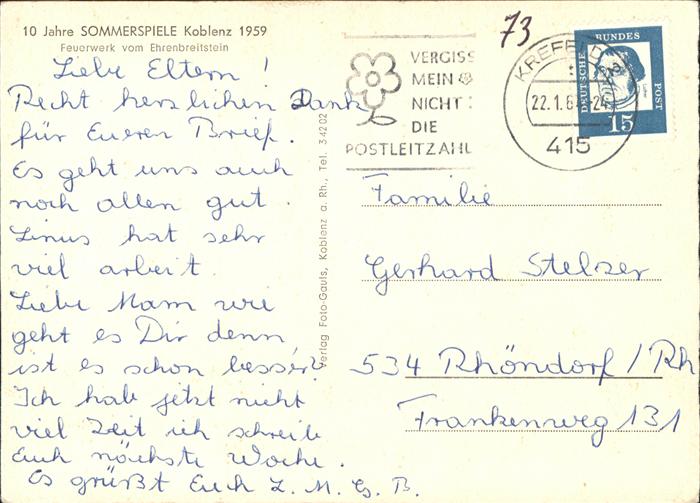 10 Jahre SOMMERSPIELE Koblenz 1959
Feuerwerk vom Ehrenbreitstein
Liebe Eltern !
Recht herzlichen Dank
für Eueren Brief.
Es geht uns auch
noch allen gut.
Linus hat sehr
viel arbeit.
Liebe Mam wie
geht es Dir denn,
ist es schon besser?
Ich hab jetzt nicht
viel Zeit ich schreibe
Euch nächste Woche.
Es grüßt Euch L. M. G. B.
Verlag Foto-Gauls, Koblenz a. Rh., Tel. 34202
73
VERGISS
MEIN
NICHT
DIE
POSTLEITZAHL
KREFELD
22.1.6 -24
415
DEUTSCHE BUNDES POST
15
Familie
Gerhard Stelzer
534 Rhöndorf / Rh
Frankenweg 131